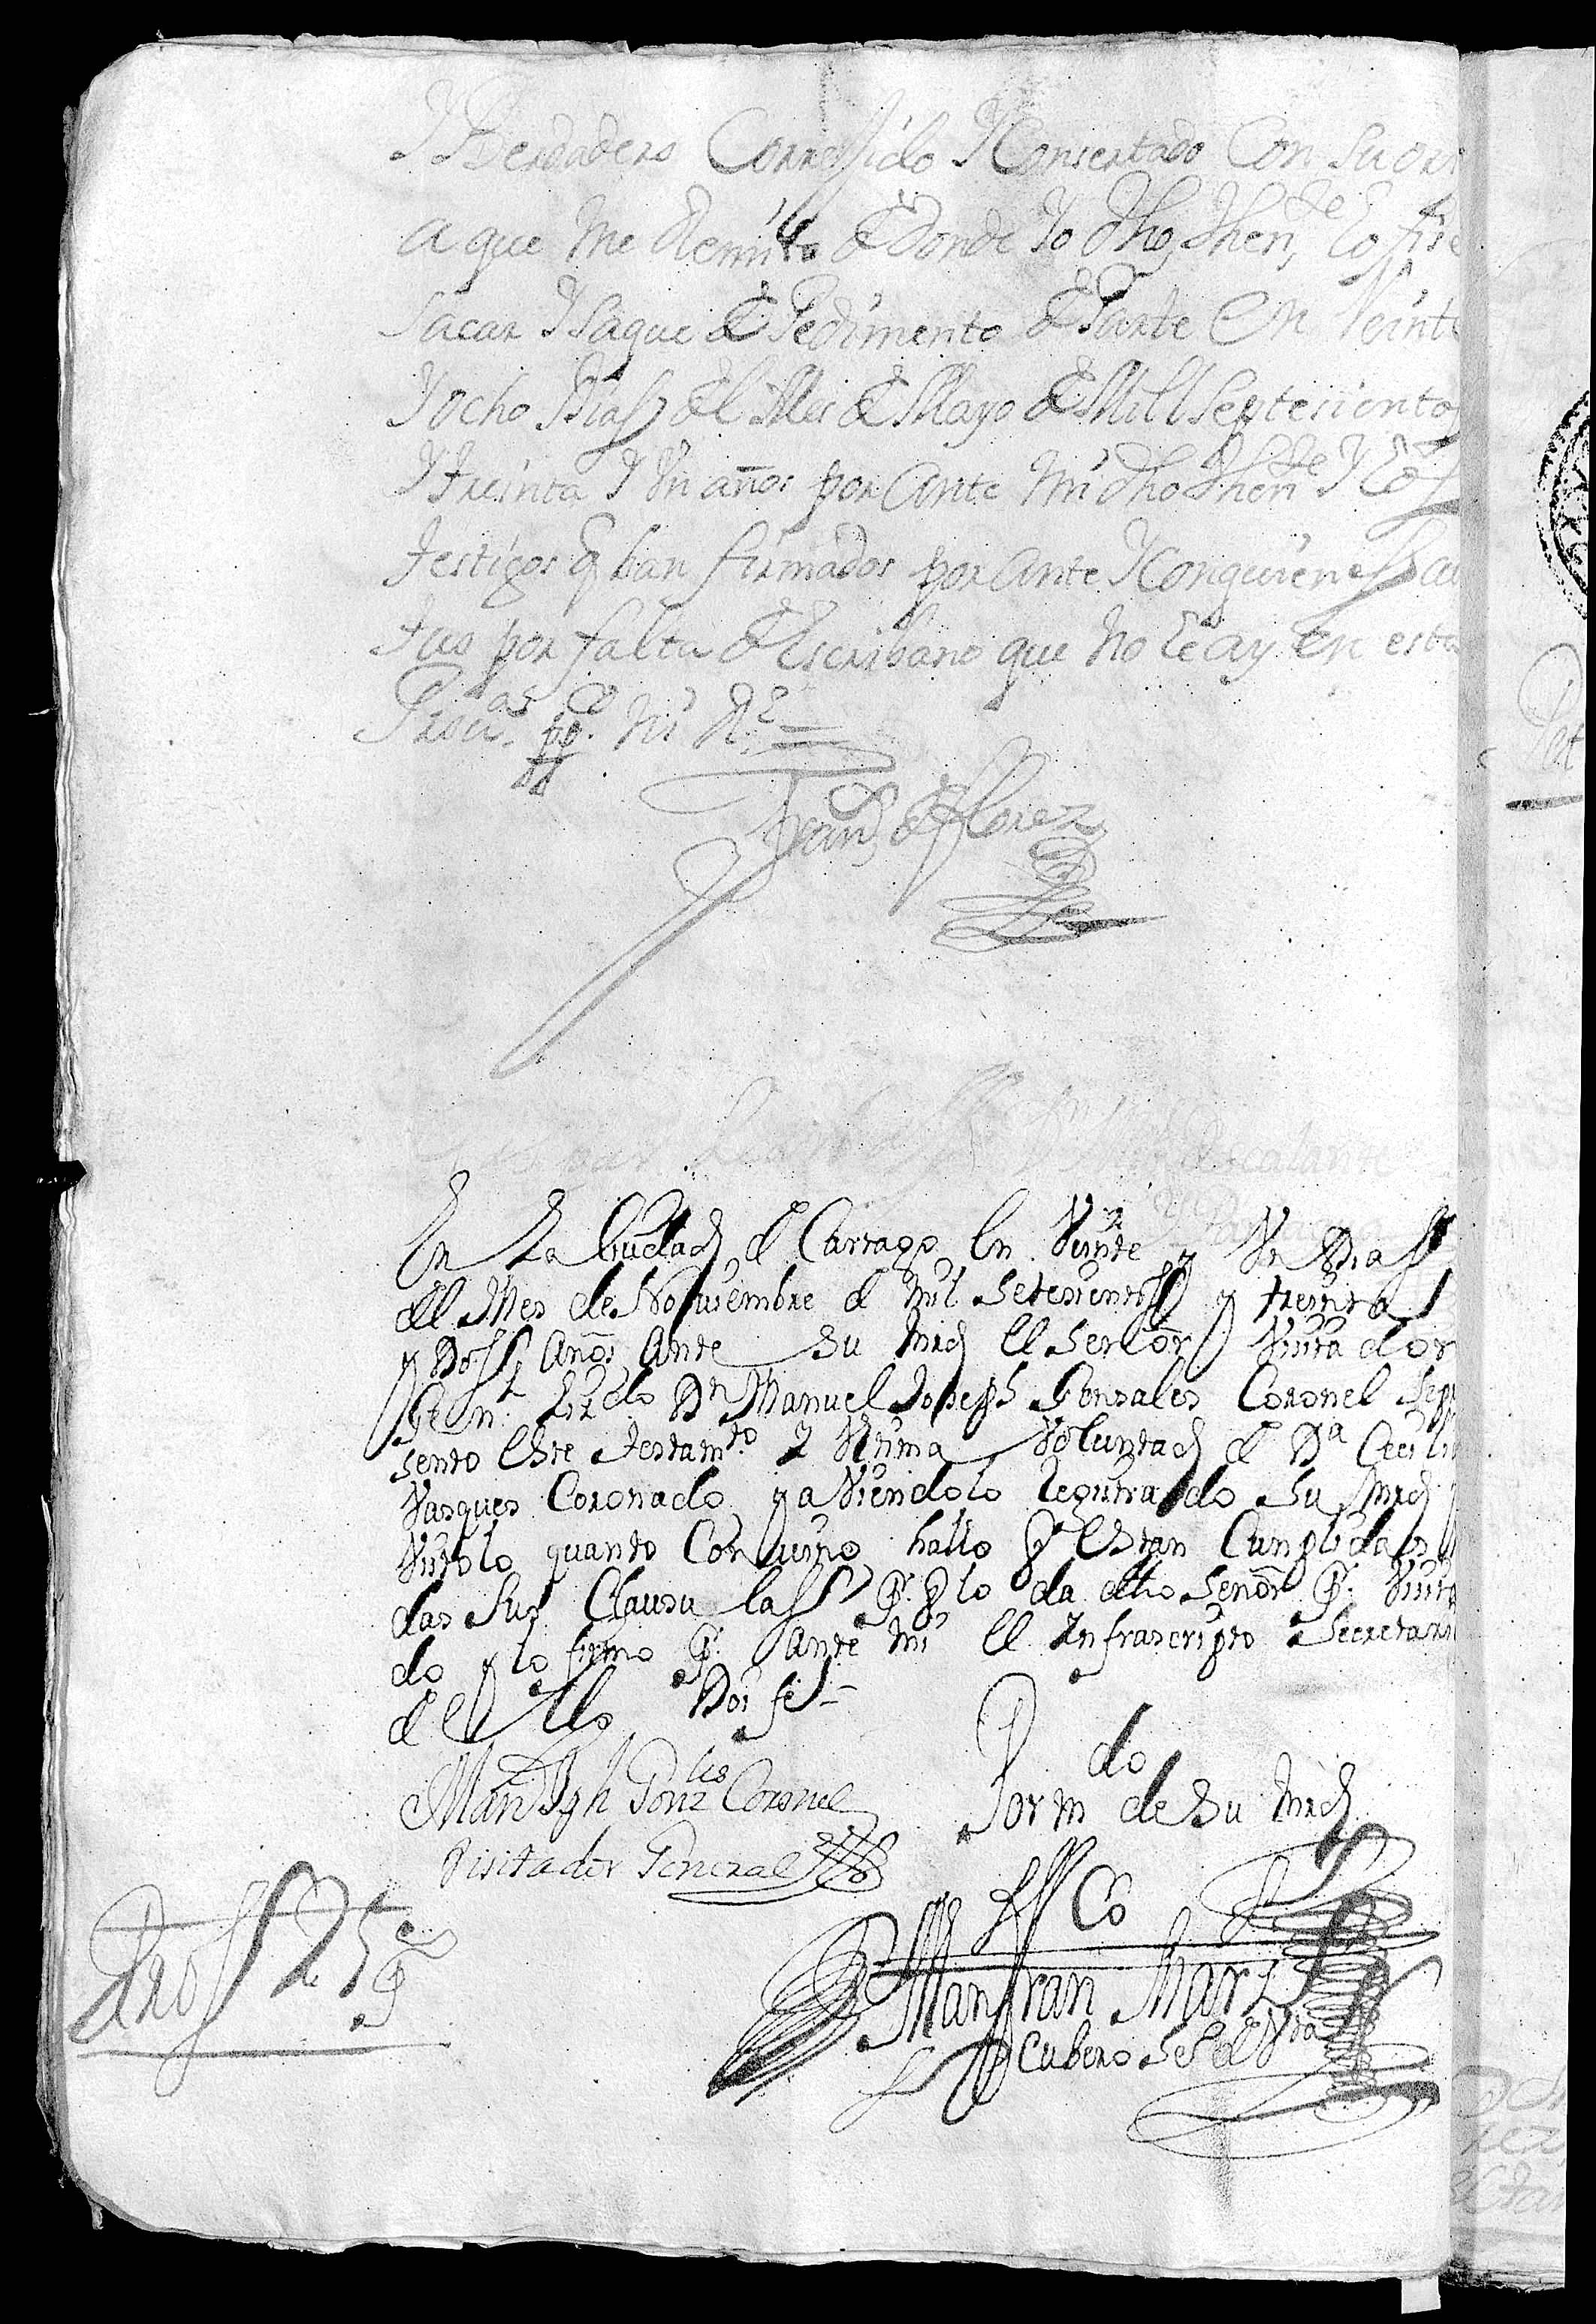 Y Berdadero Corregido Y Consertado Con Su ori
a que me Remito de donde Yo dho Then.te lo fise
Sacar Y Saque de Pedimento de Parte En Veinte
Y ocho Dias del Mes de Mayo de Mill Septesientos
Y treinta Y Un años por Ante Mi dho Then.te Y los
testigos q han firmados por Ante Y Con quienes
tuo por falta de Escribano que no le ay En esta
Prou.as
Fran.co de Flores
Escalante
En La Ciudad de Cartago En Veinte y Un Dias
del Mes de Nouiembre de mil setesientos y treinta
y Dos años Ante Su Mrd El Señor Visitador
Gen.l Liz.do D.n Manuel Joseph Gonsales Coronel Se pre
sento Este testam.to y Ultima Voluntad de D.a Cecilia
Vasques Coronado y aviendolo registrado Su Mrd y
Vistolo quanto Convino hallo q Estan Cumplidas
das Sus Clausulas P. q lo da dho Señor P. Visita
do y lo firmo P. Ante Mi El Infrascripto Secretario
de Ello Doi fe
Man Jph Gonz.les Coronel
Visitador General
Por m.do de Su Mrd
Man Fran Marz
Cubero Se de V.ta
Dros 2 p